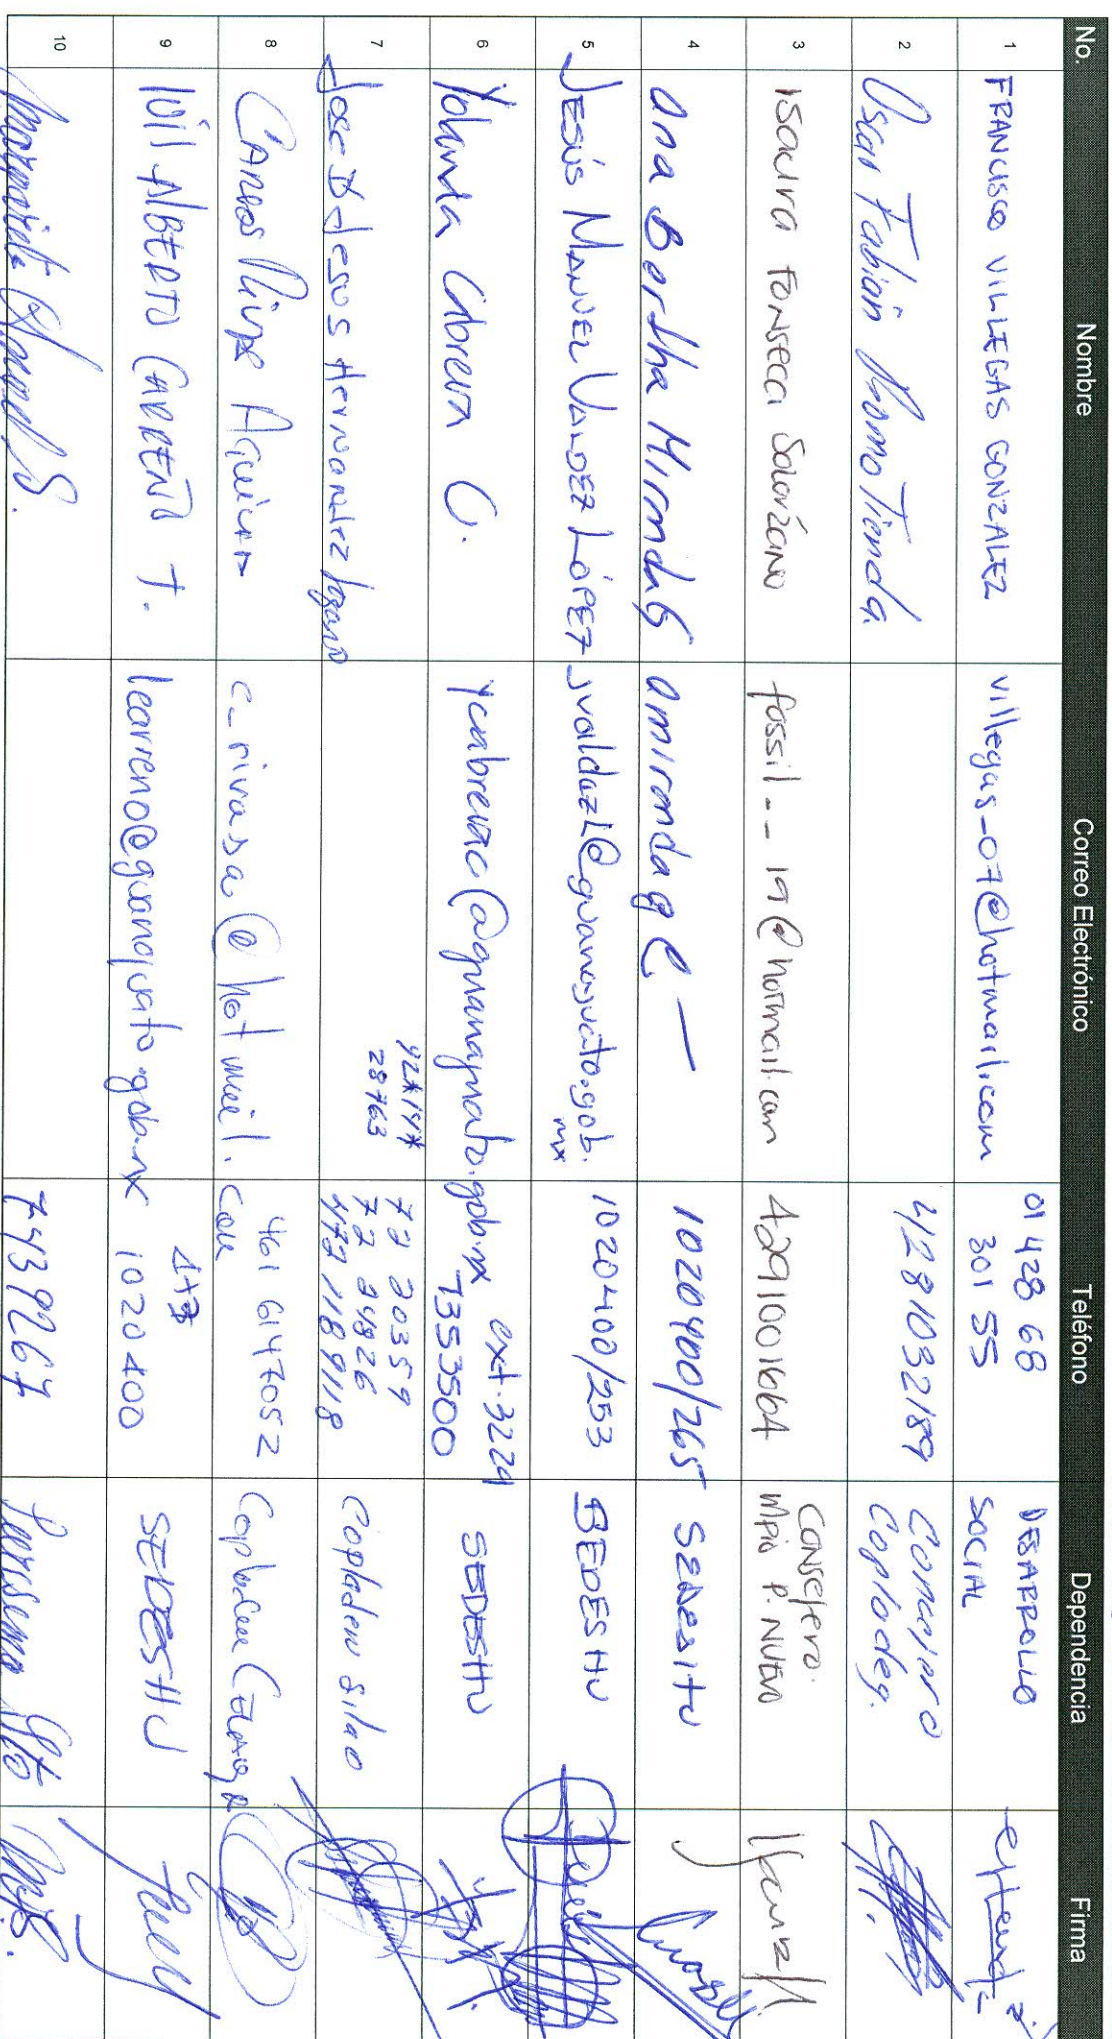 No. Nombre Correo Electrónico Teléfono Dependencia Firma
1 FRANCISCO VILLEGAS GONZALEZ villegas_07@hotmail.com 01 428 68 301 55 DESARROLLO SOCIAL
2 Oscar Fabian Romo Tienda. 428 1032189 Concejero Coplodeg.
3 Isaura Fonseca Solorzano fossil_-_19@hotmail.com 4291001664 Consejero. Mpio P. Nuevo
4 Ana Bertha Miranda G amirandag@ — 1020400/265 SEDESHU
5 JESÚS MANUEL VALDEZ LÓPEZ jvaldezl@guanajuato.gob.mx 1020400/253 SEDESHU
6 Yolanda Cabrera C. ycabrerac@guanajuato.gob.mx ext. 3229 7353500 SEDESHU
7 Jose D Jesus Hernandez 28763 72 20359 72 24826 472 118 9118 Copladem Silao
8 CARLOS Rivas Aguilar c_rivasa@hotmail.com 461 6147052 Copladem
9 ALBERTO CARREÑO T. lcarreno@guanajuato.gob.mx 473 1020400 SEDESHU
10 Margarita S. 7439267